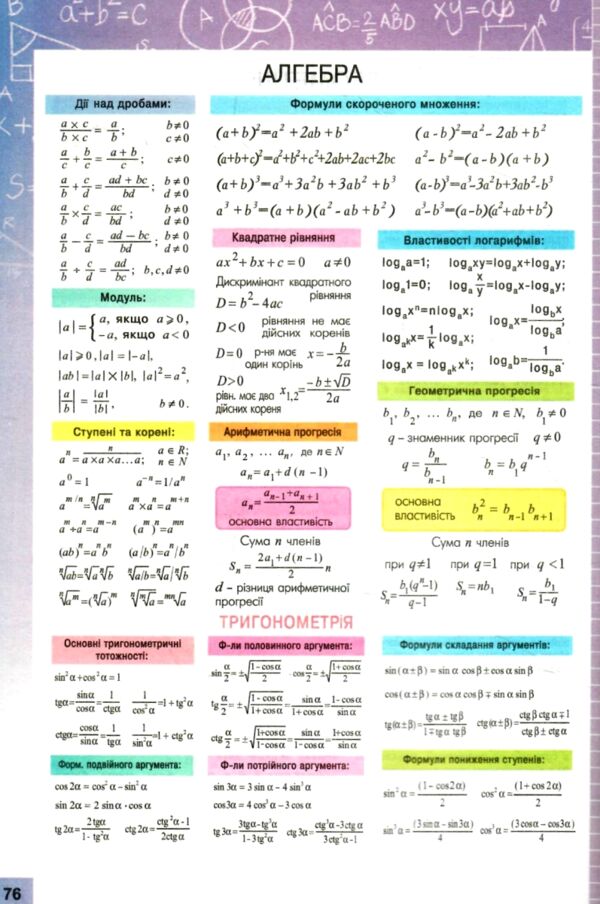 a²+b²=C
A
B
AĈB=2/5 AB̂D
xy=ap
АЛГЕБРА
Дії над дробами:
a×c / b×c = a/b; b≠0 c≠0
a/c + b/c = a+b / c; c≠0
a/b + c/d = ad + bc / bd; b≠0 d≠0
a/b × c/d = ac/bd; b≠0 d≠0
a/b − c/d = ad − bc / bd; b≠0 d≠0
a/b ÷ c/d = ad/bc; b,c,d≠0
Модуль:
|a| = { a, якщо a⩾0,
−a, якщо a<0
|a|⩾0, |a| = |−a|,
|ab| = |a| × |b|, |a|² = a²,
|a/b| = |a|/|b|, b≠0.
Ступені та корені:
aⁿ = a×a×a...a; (n) a∈R; n∈N
a⁰ = 1 a⁻ⁿ = 1/aⁿ
a^(m/n) = ⁿ√aᵐ aᵐ×aⁿ = aᵐ⁺ⁿ
aᵐ÷aⁿ = aᵐ⁻ⁿ (aᵐ)ⁿ = aᵐⁿ
(ab)ⁿ = aⁿbⁿ (a/b)ⁿ = aⁿ/bⁿ
ⁿ√ab = ⁿ√a ⁿ√b ⁿ√a/b = ⁿ√a/ⁿ√b
ⁿ√aᵐ = (ⁿ√a)ᵐ ᵐ√ⁿ√a = ᵐⁿ√a
Формули скороченого множення:
(a+b)² = a² + 2ab + b² (a-b)² = a² − 2ab + b²
(a+b+c)² = a²+b²+c²+2ab+2ac+2bc a² − b² = (a-b)(a+b)
(a+b)³ = a³+3a²b+3ab²+b³ (a-b)³ = a³-3a²b+3ab²-b³
a³+b³ = (a+b)(a²-ab+b²) a³-b³ = (a-b)(a²+ab+b²)
Квадратне рівняння
ax²+bx+c = 0 a≠0
Дискримінант квадратного
рівняння
D = b²−4ac
D<0 рівняння не має
дійсних коренів
D=0 р-ня має
один корінь x = −b/2a
D>0
рівн. має два
дійсних кореня x₁,₂ = −b±√D / 2a
Арифметична прогресія
a₁, a₂, ... aₙ, де n∈N
aₙ = a₁+d(n −1)
aₙ = aₙ₋₁+aₙ₊₁ / 2
основна властивість
Сума n членів
Sₙ = 2a₁+d(n−1) / 2 n
d - різниця арифметичної
прогресії
Властивості логарифмів:
logₐa=1; logₐxy=logₐx+logₐy;
logₐ1=0; logₐ x/y =logₐx-logₐy;
logₐxⁿ=nlogₐx; logₐx= log_b x / log_b a;
log_aᵏ x = 1/k logₐx;
logₐx = log_aᵏ xᵏ; logₐb= 1 / log_b a.
Геометрична прогресія
b₁, b₂, ... bₙ, де n∈N, b₁≠0
q - знаменник прогресії q≠0
q = bₙ / bₙ₋₁ bₙ = b₁qⁿ⁻¹
основна
властивість bₙ² = bₙ₋₁ bₙ₊₁
Сума n членів
при q≠1 при q=1 при q <1
Sₙ = b₁(qⁿ-1) / q-1 Sₙ = nb₁ Sₙ = b₁ / 1-q
ТРИГОНОМЕТРІЯ
Основні тригонометричні
тотожності:
sin²α+cos²α = 1
tgα = sinα/cosα = 1/ctgα 1/cos²α = 1+tg²α
ctgα = cosα/sinα = 1/tgα 1/sin²α = 1+ctg²α
Форм. подвійного аргумента:
cos 2α = cos²α − sin²α
sin 2α = 2 sinα · cosα
tg 2α = 2tgα / 1- tg²α ctg 2α = ctg²α -1 / 2ctgα
Ф-ли половинного аргумента:
sin α/2 = ±√(1-cosα / 2) cos α/2 = ±√(1+cosα / 2)
tg α/2 = ±√(1-cosα / 1+cosα) = sinα / 1+cosα = 1-cosα / sinα
ctg α/2 = ±√(1+cosα / 1-cosα) = sinα / 1-cosα = 1+cosα / sinα
Ф-ли потрійного аргумента:
sin 3α = 3 sinα − 4 sin³α
cos3α = 4 cos³α − 3 cosα
tg 3α = 3tgα-tg³α / 1-3tg²α ctg 3α = ctg³α-3ctgα / 3ctg²α-1
Формули складання аргументів:
sin (α±β) = sinα cosβ ± cosα sinβ
cos (α±β) = cosα cosβ ∓ sinα sinβ
tg(α±β) = tgα ± tgβ / 1∓tgα tgβ ctg(α±β) = ctgβ ctgα∓1 / ctgβ ± ctgα
Формули пониження ступенів:
sin²α = (1-cos2α) / 2 cos²α = (1+cos2α) / 2
sin³α = (3sinα-sin3α) / 4 cos³α = (3cosα-cos3α) / 4
76